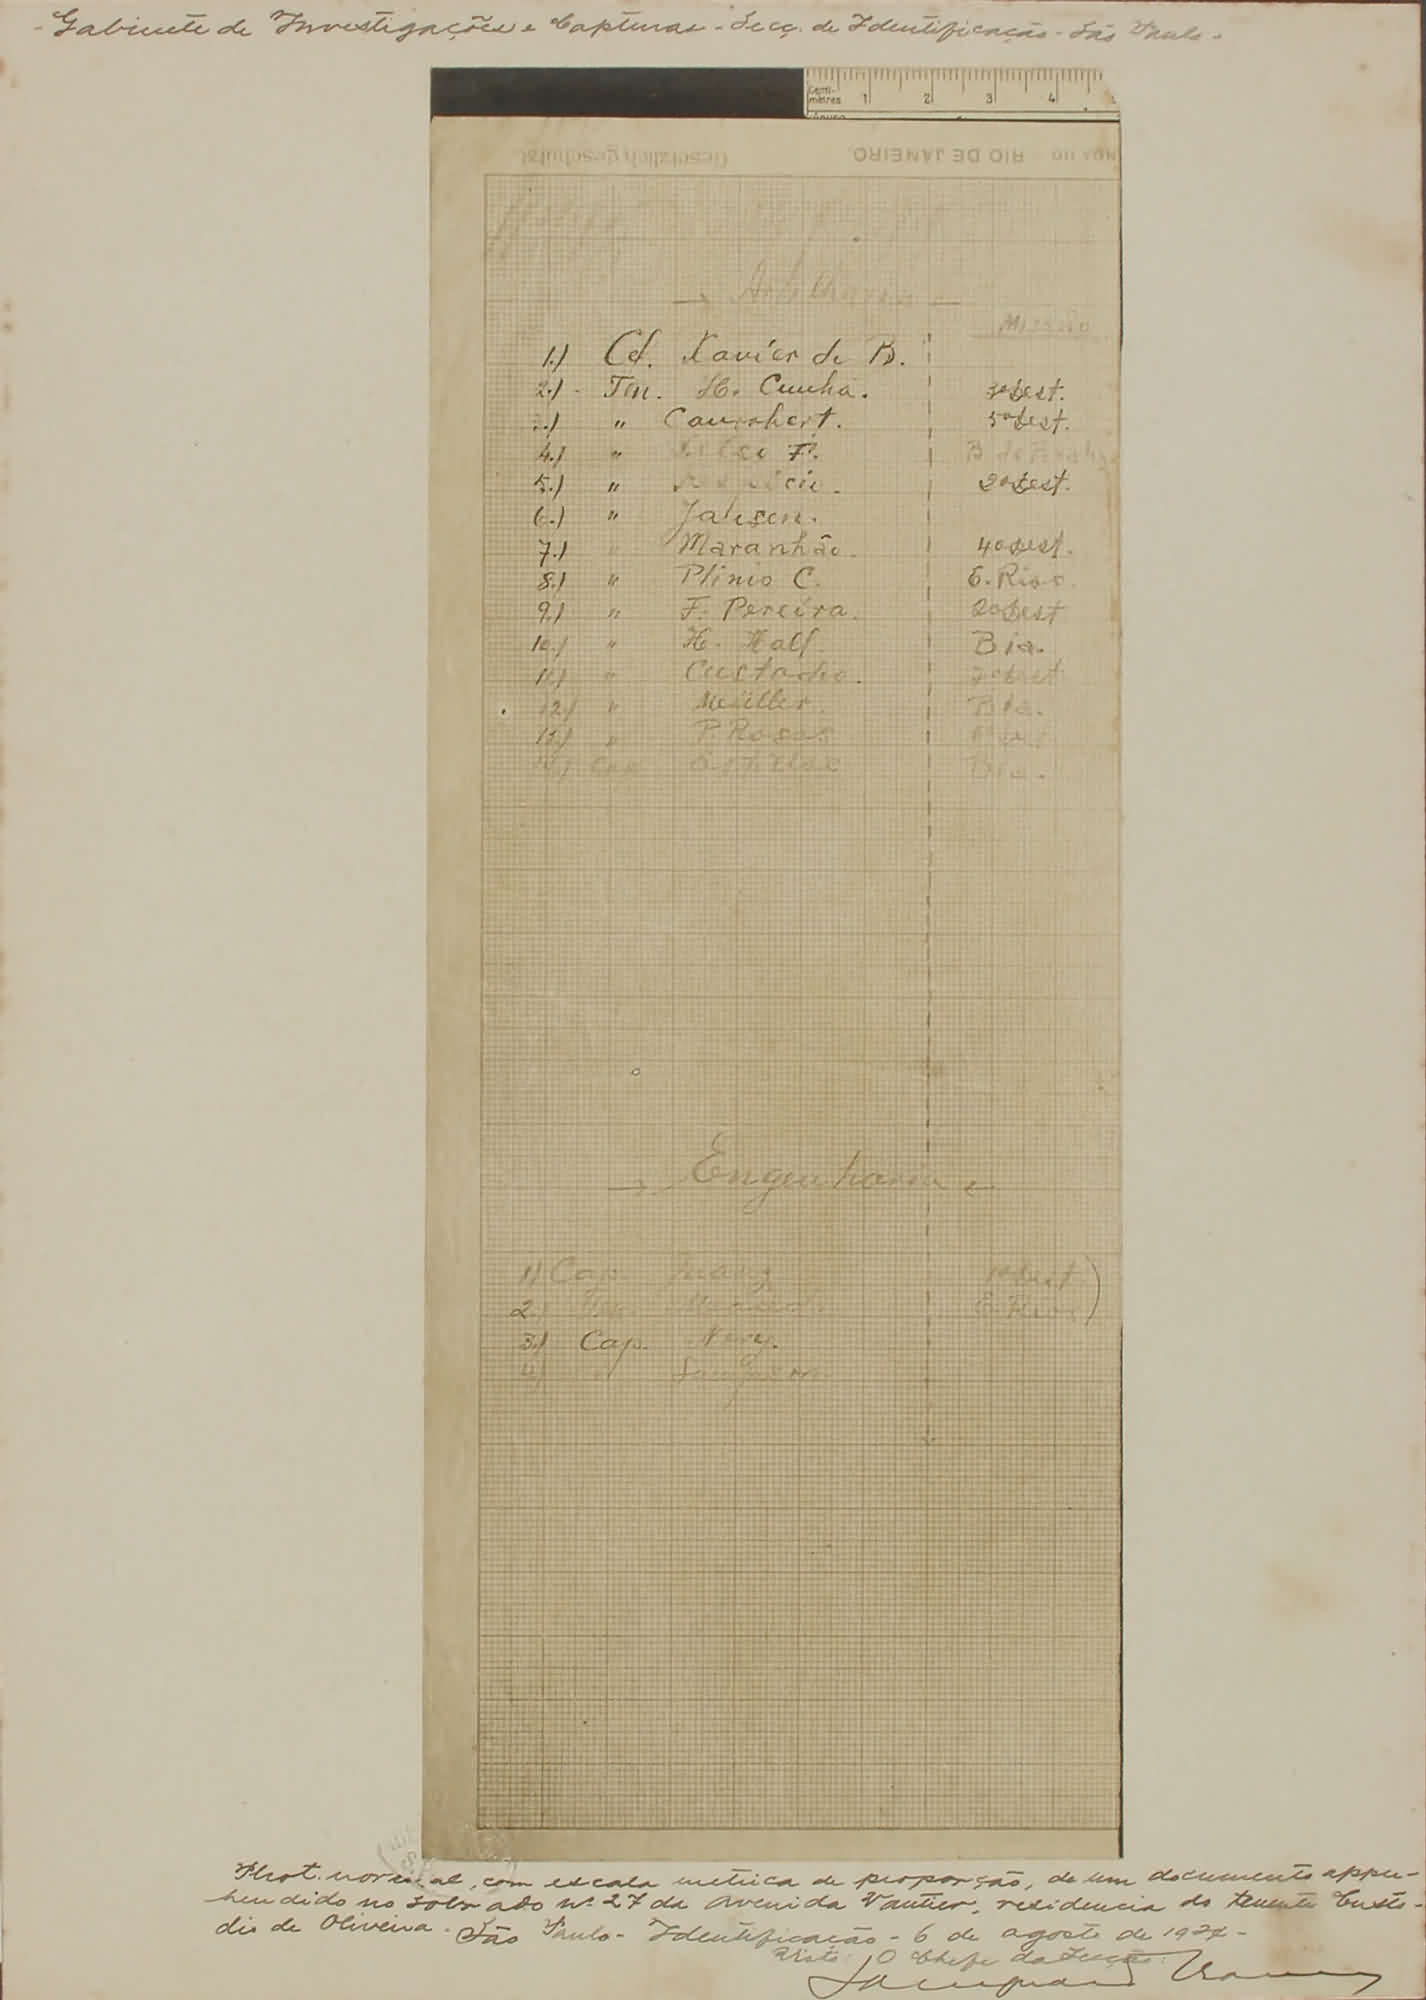 - Gabinete de Investigações e Capturas - Secç. de Identificação - São Paulo -
Centi-
metres 1 2 3 4
Gesetzlich geschützt RIO DE JANEIRO
1.) Cel. Xavier de B.
2.) - Ten. H. Cunha. 3º Dest.
3.) " Canrobert. 5º Dest.
4.) " F.
5.) " 2º Dest.
6.) " Jansen.
7.) " Maranhão. 4º Dest.
8.) " Plinio C. E. Rios.
9.) " F. Pereira. 2º Dest
10.) " H. Hall. Bia.
11.) " Custodio. Dest
12.) " Müller. Bia.
13.) " P. Rosas
Bia.
→ Engenharia ←
1) Cap. Dest )
2.) Ten. E. Rios )
3.) Cap. Nery.
4.) " Sampson
Phot. normal, com escala metrica de proporção, de um documento appre-
hendido no sobrado nº 27 da Avenida Vautier, residencia do tenente Custo-
dio de Oliveira. São Paulo - Identificação - 6 de agosto de 1924 -
Visto: O Chefe da Secção: